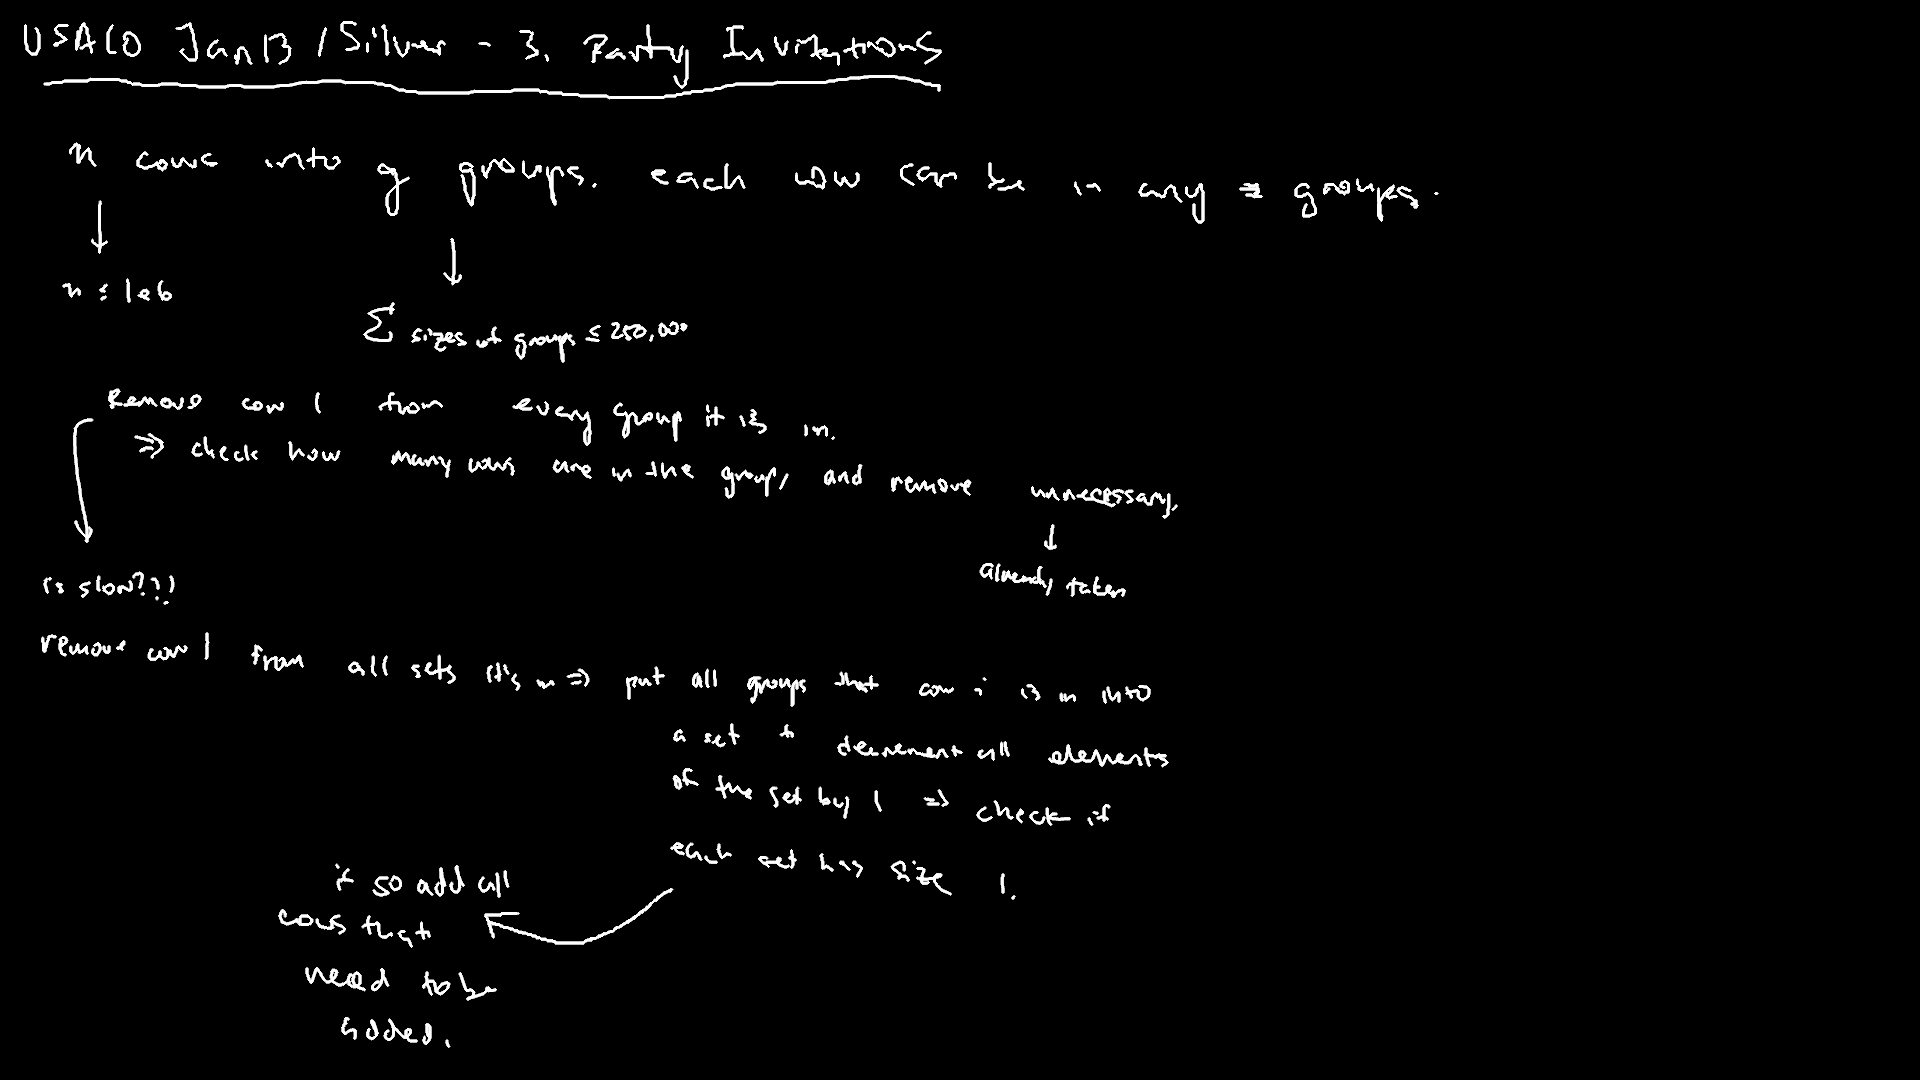 USACO Jan13 / Silver - 3. Party Invitations
n cows into g groups. each cow can be in any # groups.
n ≤ 1e6
Σ sizes of groups ≤ 250,000
Remove cow 1 from every group it is in.
⇒ check how many cows are in the group, and remove unnecessary.
already taken
is slow???
remove cow 1 from all sets it's in ⇒ put all groups that cow i is in into
a set & decrement all elements
of the set by 1 ⇒ check if
each set has size 1.
if so add all
cows that
need to be
added.